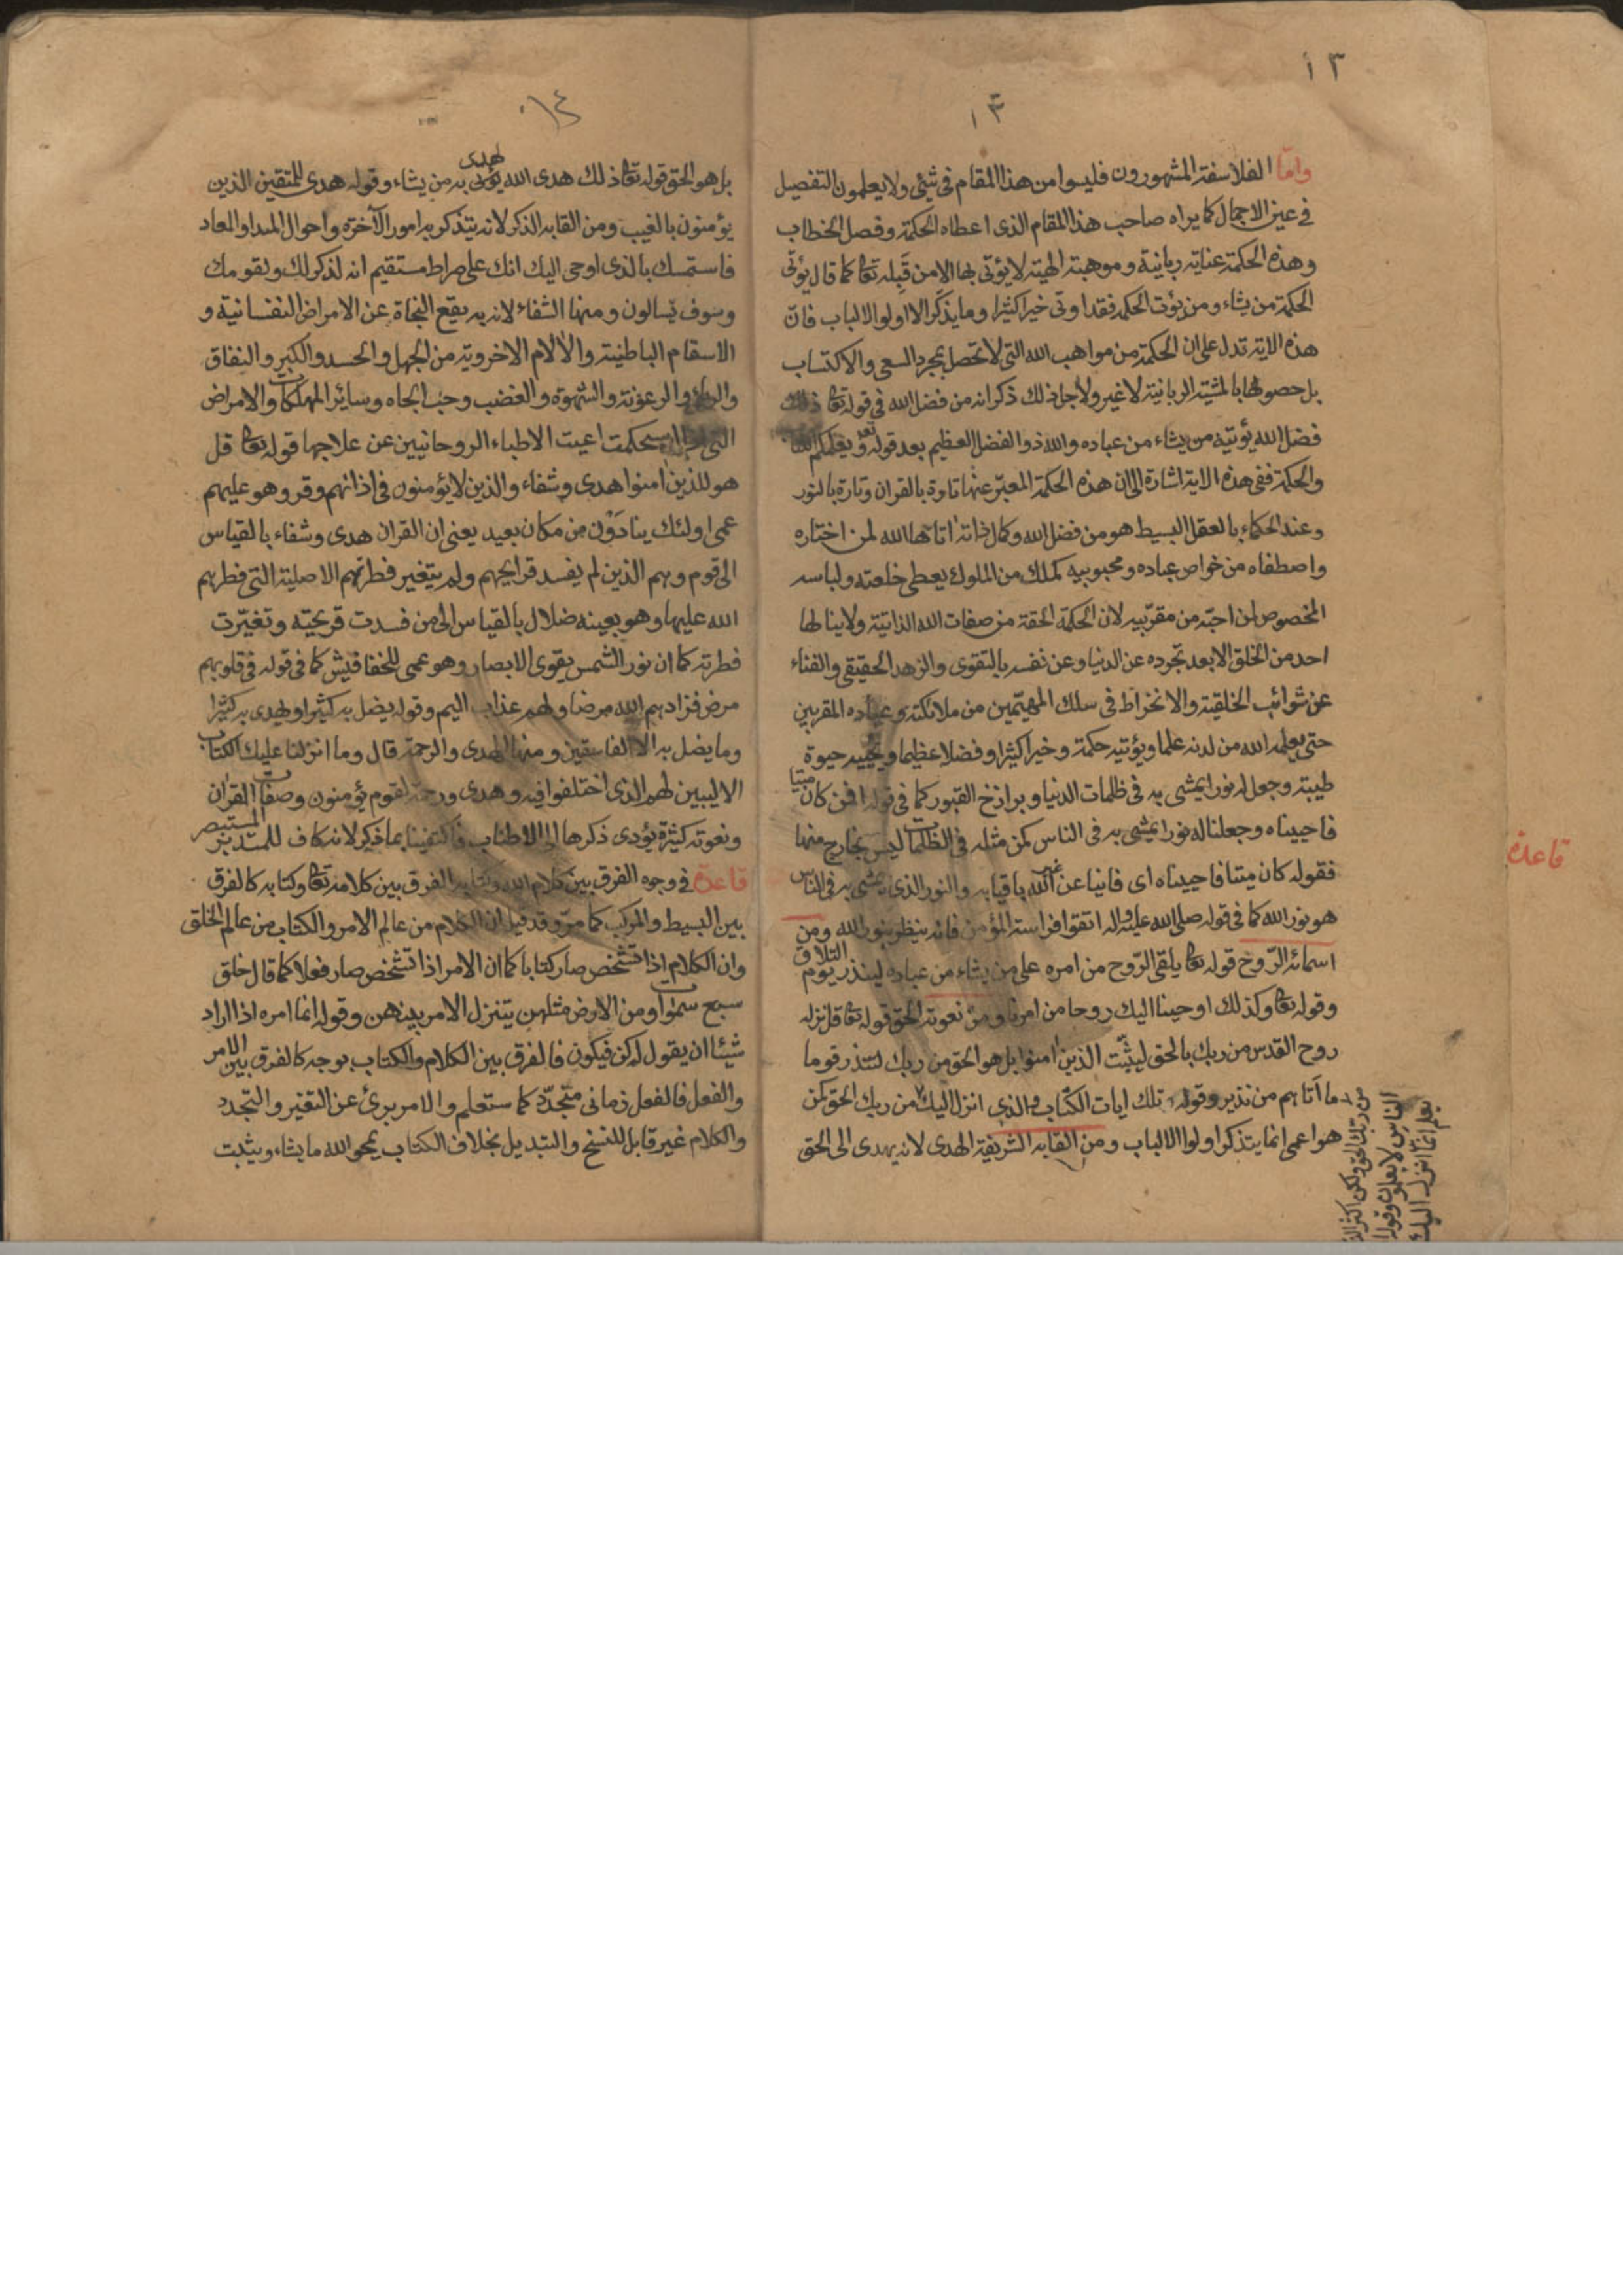 ١٣
١٣
واما الفلاسفة المشهورون فليسوا من هذا المقام فى شئى ولا يعلمون التفصيل
فى عين الاجمال كما يراه صاحب هذا المقام الذى اعطاه الحكمة وفصل الخطاب
وهذه الحكمة عناية ربانية وموهبة الهية لا يؤتى بها الا من قبله تعا كما قال يؤتى
الحكمة من يشاء ومن يؤت الحكمة فقد اوتى خيرا كثيرا وما يذكر الا اولوا الالباب فان
هذه الاية تدل على ان الحكمة من مواهب الله التى لا تحصل بمجرد السعى والاكتساب
بل حصولها بالمشية الربانية لا غير ولاجل ذلك ذكر انه من فضل الله فى قوله تعا ذلك
فضل الله يؤتيه من يشاء من عباده والله ذو الفضل العظيم بعد قوله تعا ويعلمكم الكتاب
والحكمة ففى هذه الاية اشارة الى ان هذه الحكمة المعبر عنها تارة بالقران وتارة بالنور
وعند الحكماء بالعقل البسيط هو من فضل الله وكمال ذاته اتاها الله لمن اختاره
واصطفاه من خواص عباده ومحبوبيه كملك من الملوك يعطى خلعته ولباسه
المخصوص لمن احبه من مقربيه لان الحكمة الحقة من صفات الله الذاتية ولا ينالها
احد من الخلق الا بعد تجرده عن الدنيا وعن نفسه بالتقوى والزهد الحقيقى والفناء
عن شوائب الخلقية والانخراط فى سلك المهيمين من ملائكته وعباده المقربين
حتى يعلمه الله من لدنه علما ويؤتيه حكمة وخيرا كثيرا وفضلا عظيما ويحييه حيوة
طيبة وجعل له نورا يمشى به فى ظلمات الدنيا وبرازخ القبور كما فى قوله افمن كان ميتا
فاحييناه وجعلنا له نورا يمشى به فى الناس كمن مثله فى الظلمات ليس بخارج منها
فقوله كان ميتا فاحييناه اى فانيا عن غير الله باقيا به والنور الذى يمشى به فى الناس
هو نور الله كما فى قوله صلى الله عليه واله اتقوا فراسة المؤمن فانه ينظر بنور الله ومن
اسمائه الروح قوله تعا يلقى الروح من امره على من يشاء من عباده لينذر يوم التلاق
وقوله تعا وكذلك اوحينا اليك روحا من امرنا ومن نعوته الحق قوله تعا قل نزله
روح القدس من ربك بالحق ليثبت الذين امنوا بل هو الحق من ربك لتنذر قوما
ما اتاهم من نذير وقوله تلك ايات الكتاب والذى انزل اليك من ربك الحق كمن
هو اعمى انما يتذكر اولوا الالباب ومن القابه الشريفة الهدى لانه يهدى الى الحق
من ربك الحق ولكن اكثر
الناس لا يعلمون وقوله
يعلم انما انزل اليك
قاعدة
١٤
بل هو الحق قوله تعا ذلك هدى الله يهدى به من يشاء وقوله هدى للمتقين الذين
يؤمنون بالغيب ومن القابه الذكر لانه يتذكر به امور الآخرة واحوال المبدا والمعاد
فاستمسك بالذى اوحى اليك انك على صراط مستقيم انه لذكر لك ولقومك
وسوف يسالون ومنها الشفاء لانه به يقع النجاة عن الامراض النفسانية و
الاسقام الباطنية والالام الاخروية من الجهل والحسد والكبر والنفاق
والرياء والرعونة والشهوة والغضب وحب الجاه وسائر المهلكات والامراض
التى اذا استحكمت اعيت الاطباء الروحانيين عن علاجها قوله تعا قل
هو للذين امنوا هدى وشفاء والذين لا يؤمنون فى اذانهم وقر وهو عليهم
عمى اولئك ينادون من مكان بعيد يعنى ان القران هدى وشفاء بالقياس
الى قوم وهم الذين لم يفسد قرايحهم ولم يتغير فطرتهم الاصلية التى فطرهم
الله عليها وهو بعينه ضلال بالقياس الى من فسدت قريحته وتغيرت
فطرته كما ان نور الشمس يقوى الابصار وهو عمى للخفافيش كما فى قوله فى قلوبهم
مرض فزادهم الله مرضا ولهم عذاب اليم وقوله يضل به كثيرا ويهدى به كثيرا
وما يضل به الا الفاسقين ومنها الهدى والرحمة قال وما انزلنا عليك الكتاب
الا ليبين لهم الذى اختلفوا فيه وهدى ورحمة لقوم يؤمنون وصفات القران
ونعوته كثيرة يؤدى ذكرها الى الاطناب فاكتفينا بما ذكر لانه كاف للمتدبر المستبصر
قاعدة فى وجوه الفرق بين كلام الله وكتابه الفرق بين كلامه تعا وكتابه كالفرق
بين البسيط والمركب كما مر وقد قيل ان الكلام من عالم الامر والكتاب من عالم الخلق
وان الكلام اذا تشخص صار كتابا كما ان الامر اذا تشخص صار فعلا كما قال خلق
سبع سموات ومن الارض مثلهن يتنزل الامر بينهن وقوله انما امره اذا اراد
شيئا ان يقول له كن فيكون فالفرق بين الكلام والكتاب بوجه كالفرق بين الامر
والفعل فالفعل زمانى متجدد كما ستعلم والامر برئ عن التغير والتجدد
والكلام غير قابل للنسخ والتبديل بخلاف الكتاب يمحو الله ما يشاء ويثبت